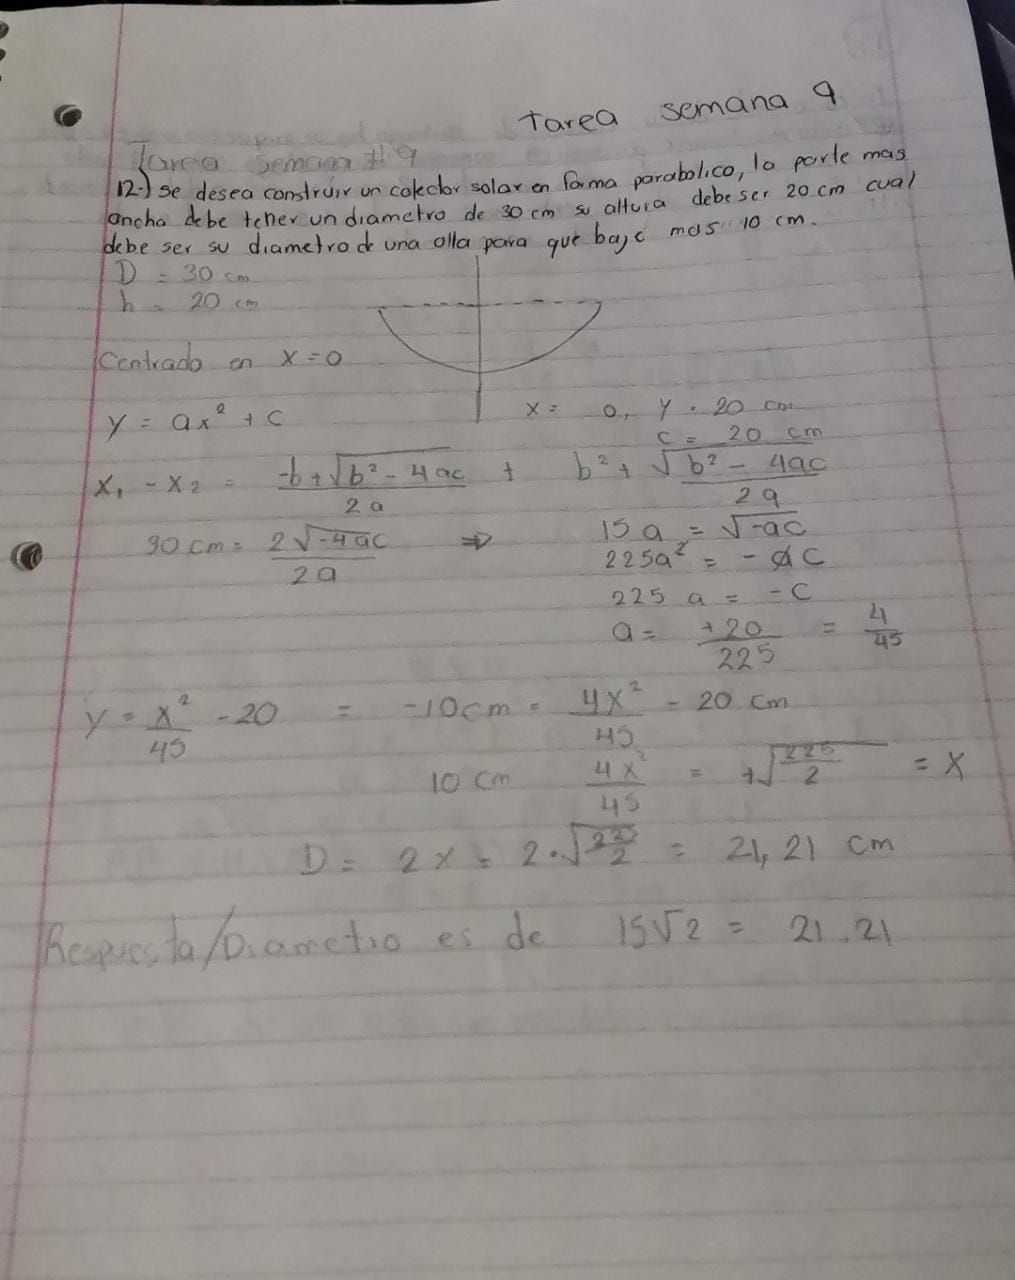 tarea semana 9
Tarea Semana #9
12-) se desea construir un colector solar en forma parabolico, la parte mas
ancha debe tener un diametro de 30 cm su altura debe ser 20 cm cual
debe ser su diametro de una olla para que baje mas 10 cm.
D = 30 cm
h = 20 cm
Centrado en x = 0
y = ax² + c
x = 0, y = 20 cm
c = 20 cm
x₁ - x₂ = -b+√b² - 4ac / 2a + b² + √b² - 4ac / 2a
30 cm = 2√-4ac / 2a ⇒ 15 a = √-ac
225a² = - a c
225 a = - c
a = +20 / 225 = 4 / 45
y = x² / 45 - 20 = -10cm = 4x² / 45 - 20 cm
10 cm 4x² / 45 = +√225 / 2 = x
D = 2x = 2·√225 / 2 = 21,21 cm
Respuesta/Diametro es de 15√2 = 21.21